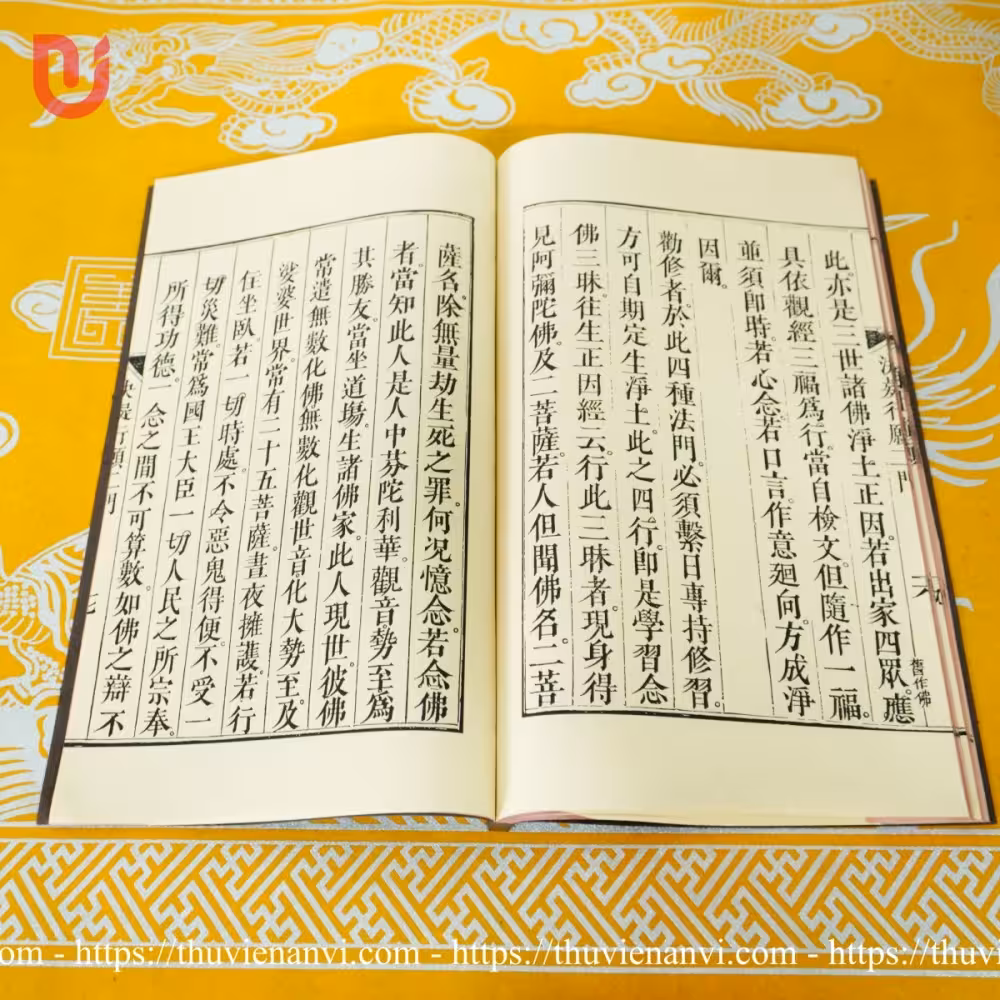 此亦是三世諸佛淨土正因。若出家四眾。應
舊作佛
具依觀經三福爲行。當自檢文。但隨作一福。
並須即時。若心念。若口言。作意廻向。方成淨
因爾。
勸修者。於此四種法門。必須繫日專持修習。
方可自期定生淨土。此之四行。即是學習念
佛三昧。往生正因。經云。行此三昧者。現身得
見阿彌陀佛。及二菩薩。若人但聞佛名。二菩
薩名。除無量劫生死之罪。何況憶念。若念佛
者。當知此人。是人中芬陀利華。觀音。勢至。爲
其勝友。當坐道場。生諸佛家。此人現世。彼佛
常遣無數化佛。無數化觀世音。化大勢至。及
娑婆世界。常有二十五菩薩。晝夜擁護。若行
住坐臥。若一切時處。不令惡鬼得便。不受一
切災難。常爲國王大臣。一切人民之所宗奉。
所得功德。一念之間。不可算數。如佛之辯。不
決疑行願二門
.com - https://thuvienanvi.com - https://thuvienanvi.com - https://thuvi